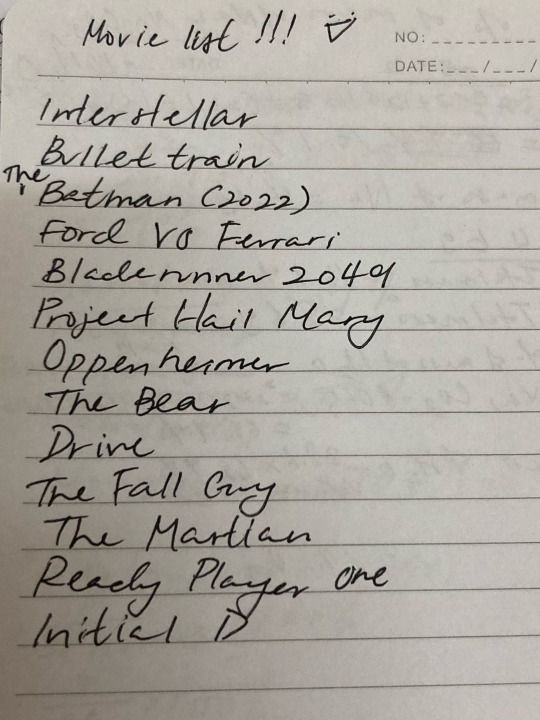 Movie list !!!
NO:
DATE: / /
Interstellar
Bullet train
The Batman (2022)
Ford Vs Ferrari
Bladerunner 2049
Project Hail Mary
Oppenheimer
The Bear
Drive
The Fall Guy
The Martian
Ready Player one
Initial D